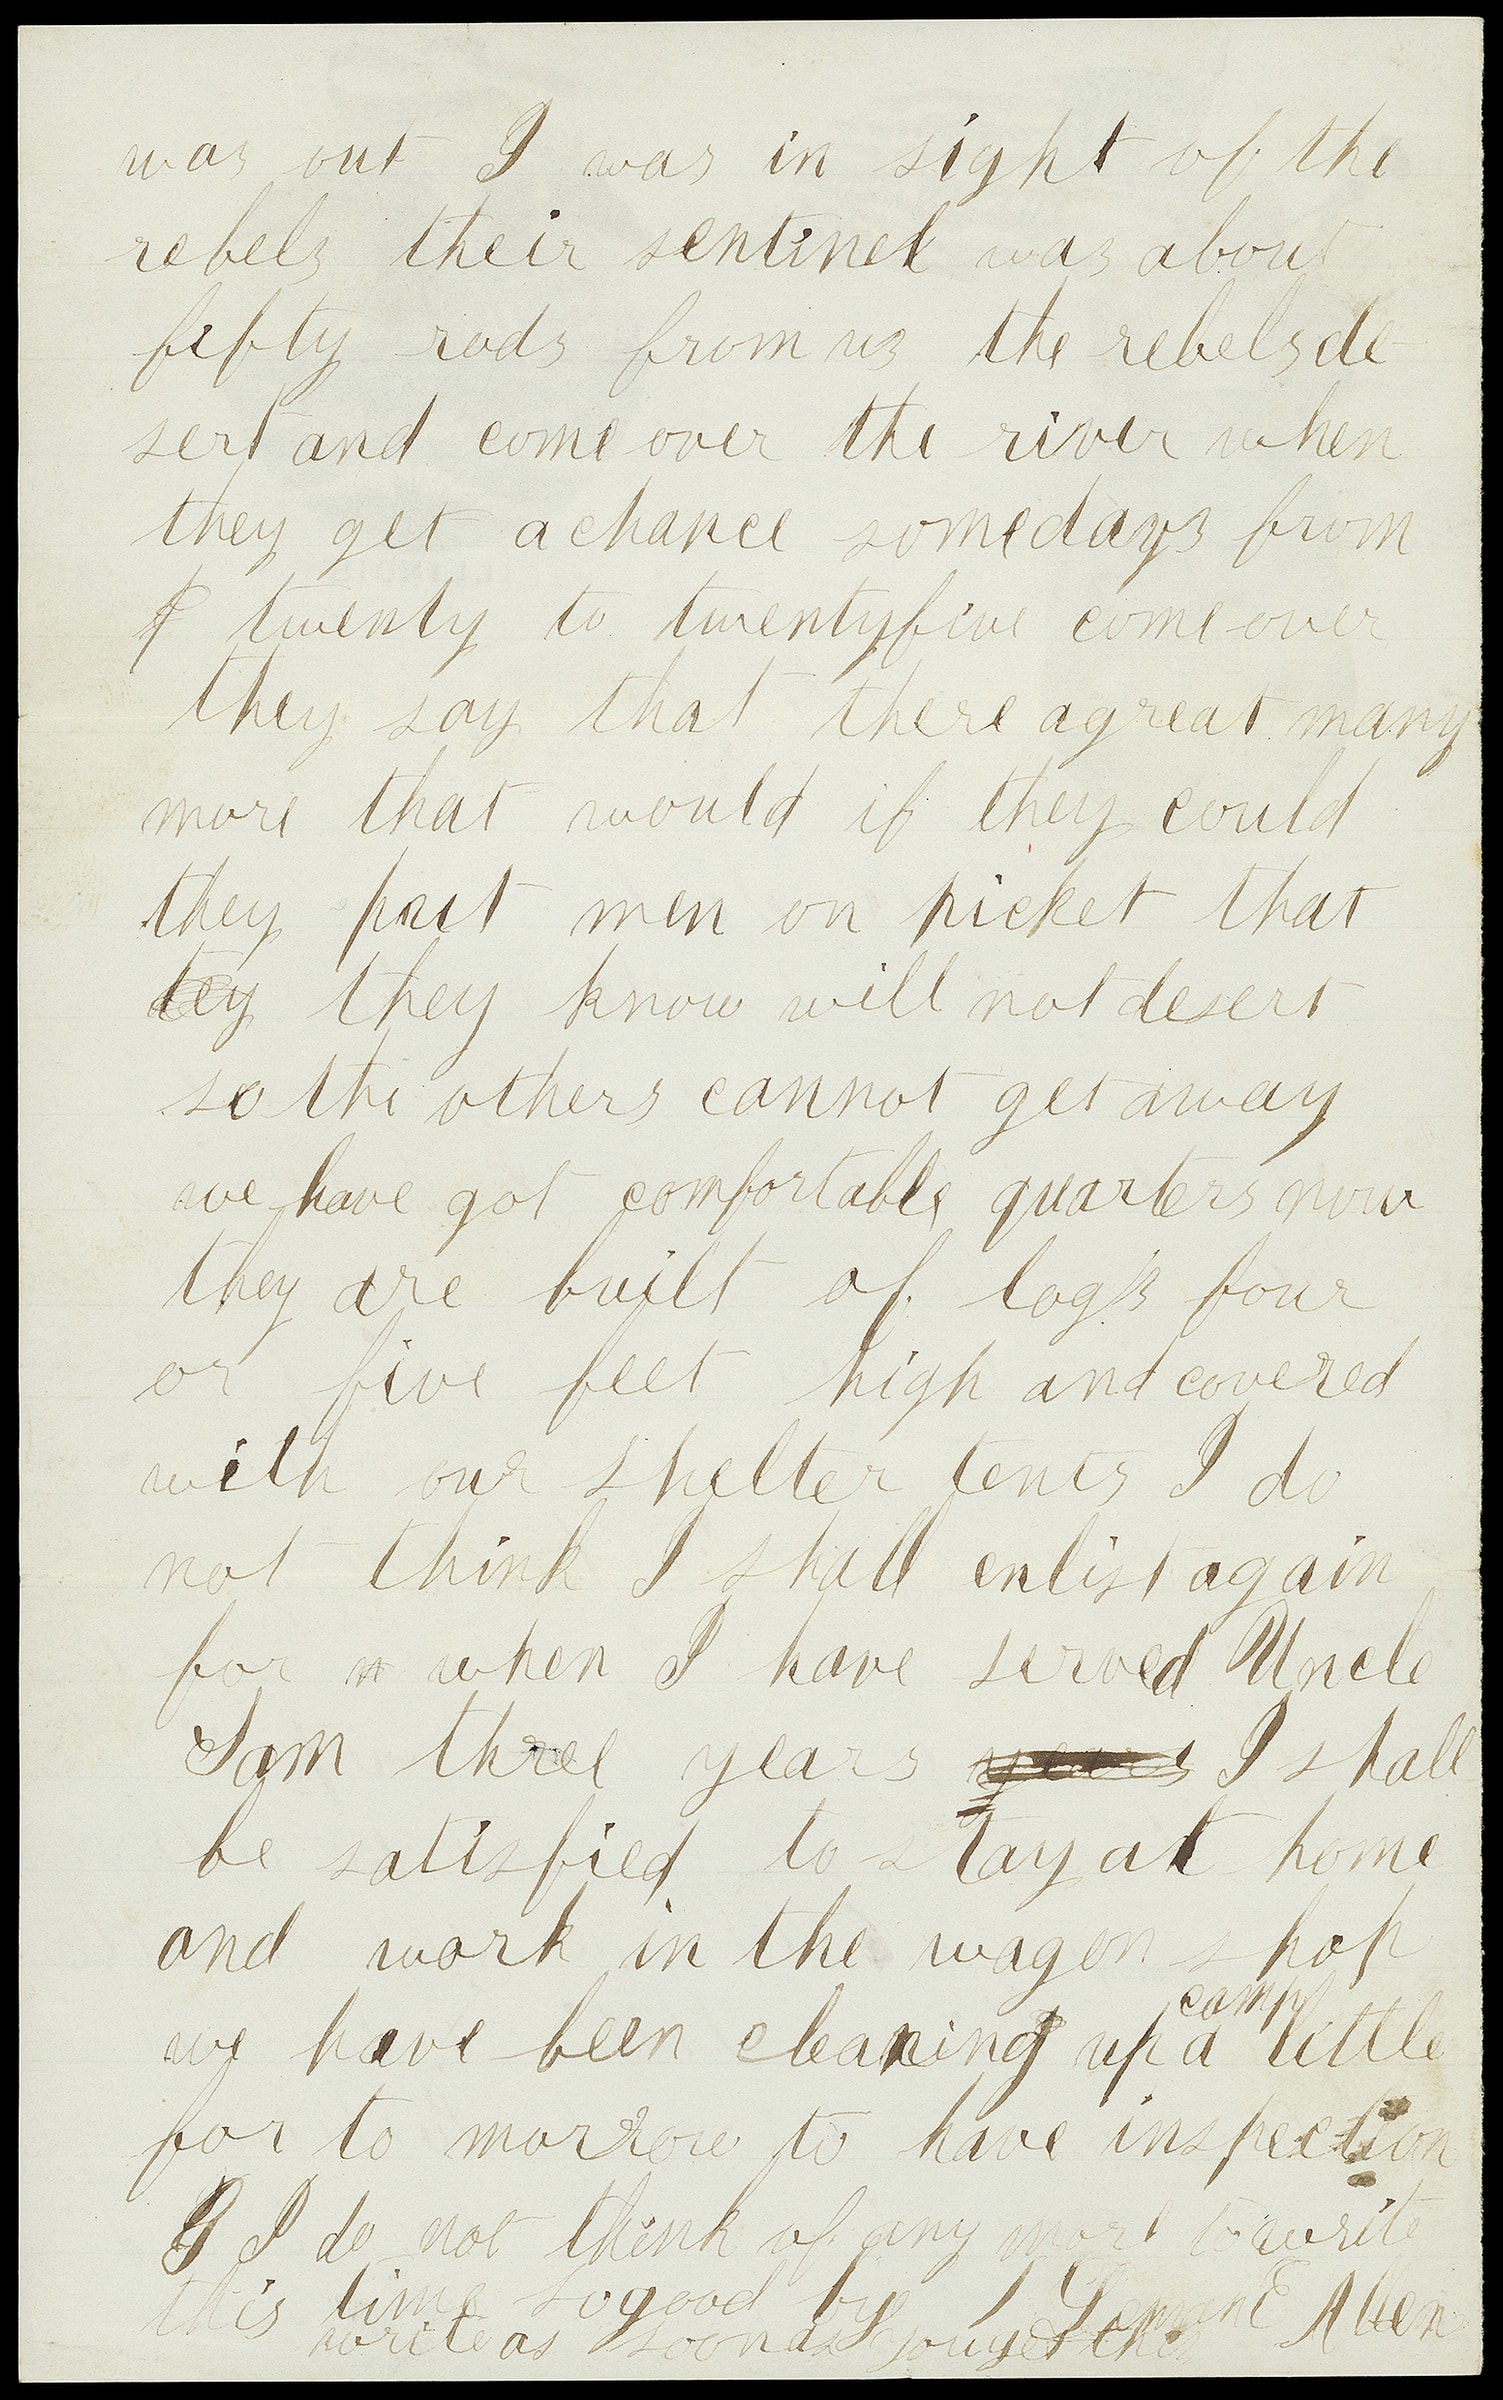 was out I was in sight of the
rebels their sentinel was about
fifty rods from us the rebels de
sert and come over the river when
they get a chance some days from
twenty to twentyfive come over
they say that there a great many
more that would if they could
they put men on picket that
tey they know will not desert
so the others cannot get away
we have got comfortable quarters now
they are built of log's four
or five feet high and covered
with our shelter tents I do
not think I shall enlist again
for when I have served Uncle
Sam three years years I shall
be satisfied to stay at home
and work in the wagon shop
camp
we have been cleaning up a little
for to morrow to have inspection
I I do not think of any more to write
this time so good by Leman E Allen
write as soon as you get this